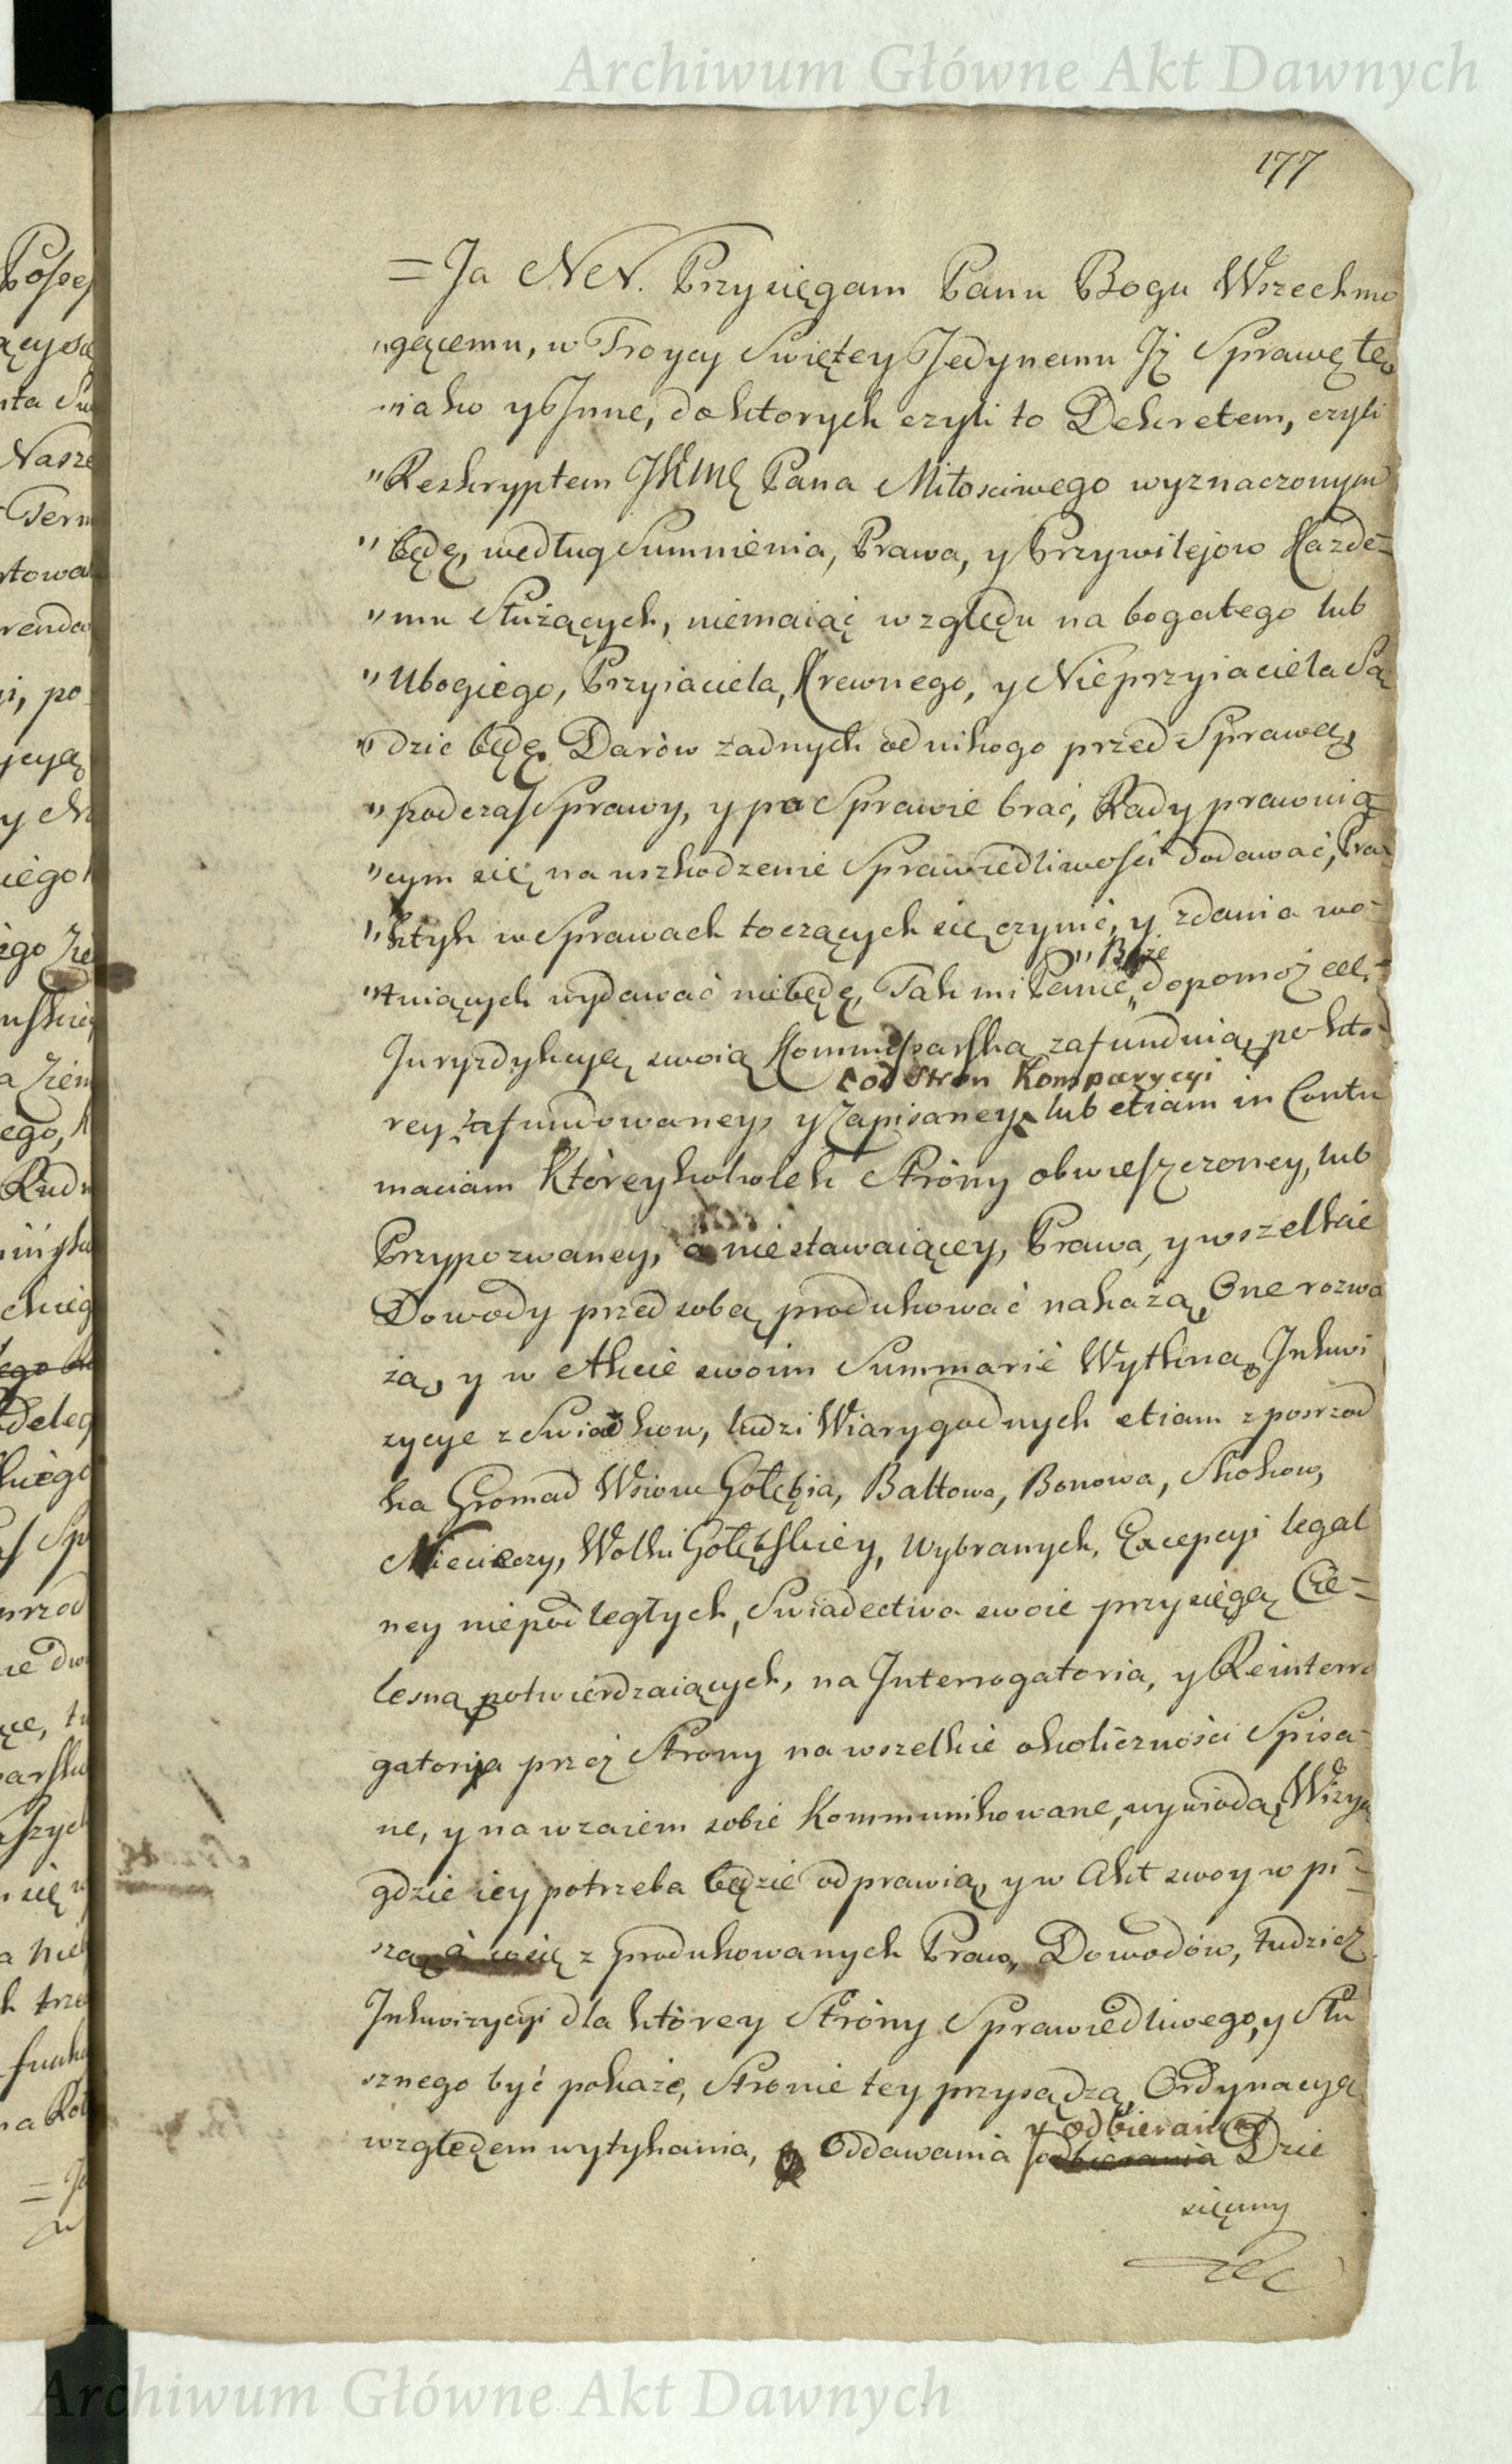 Archiwum Główne Akt Dawnych
177
= Ja NN. Przysięgam Panu Bogu Wszechmo
"gącemu, w Troycy Swiętey Jedynemu Iż Sprawę tę
"iako y Inne, do ktorych czyli to Dekretem, czyli
"Reskryptem JKMĘ Pana Miłosciwego wyznaczonym
"będę, według Sumnienia, Prawa, y Przywilejow Kazde=
"mu Służących, niemaiąć względu na bogatego lub
"Ubogiego, Przyiaciela, Krewnego, y Nieprzyiaciela Są
"dzic będę. Darów żadnych od nikogo przed Sprawą,
"podczas Sprawy, y po Sprawie brać, Rady prawuią
"cym się na uszkodzenie Sprawiedliwości dodawać, Pra
"ktyk w Sprawach toczących się czynić, y zdania wo=
" Boże
"tuiących wydawać niebędę, Tak mi Panie " dopomoż etc.
Juryzdykcyą swoią Kommissarską zafunduią, po kto=
od stron Komparycyi
rey zafundowaney, y Zapisaney, lub etiam in Contu
maciam Którey kolwiek Strony obwieszczoney, lub
Przypozwaney, a nie stawaiącey, Prawa, y wszelkie
Dowody przed sobą produkować nakażą, One rozwa
żą, y w Akcie swoim Summarie Wytkną, Inkwi
zycye z Swiadkow, ludzi Wiarygodnych etiam z posrzod
ka Gromad Wsiow Gołębia, Bałtowa, Bonowa, Skokow,
Niecieczy, Wolki Gołębskiey, Wybranych, Excepcyi legal
ney niepodległych, Swiadectwa swoie przysięgą Cie=
lesną potwierdzaiących, na Interrogatoria, y Reinterro
gatorya przez Strony na wszelkie okoliczności Spisa=
ne, y nawzaiem sobie Kommunikowane, wywiodą, Wizyą
gdzie iey potrzeba będzie odprawią, y w Akt swoy w pi=
szą z produkowanych Praw, Dowodów, tudzież
Inkwizycyi dla którey Strony Sprawiedliwego, y Słu
sznego być pokaże, Stronie tey przysądzą, Ordynacyą
y odbierania
względem wytykania, Oddawania odbierania Dzie
sięciny
Archiwum Główne Akt Dawnych